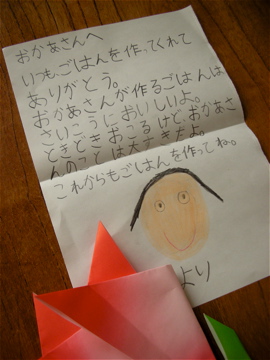 おかあさんへ
いつもごはんを作ってくれて
ありがとう。
おかあさんが作るごはんは
さいこうにおいしいよ。
ときどきおこるけど、おかあさ
んのことは大すきだよ。
これからもごはんを作ってね。
より